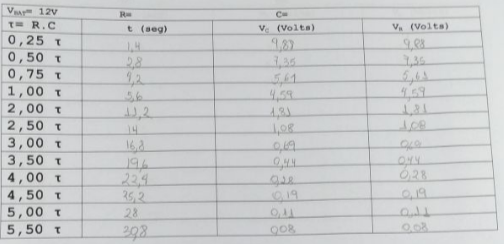 V_BAT= 12V R= C=
τ= R.C t (seg) V_C (Volts) V_R (Volts)
0,25 τ 1,4 9,87
0,50 τ 2,8 7,35 7,35
0,75 τ 4,2 5,61 5,61
1,00 τ 5,6 4,59 4,59
2,00 τ 11,2 1,81 1,81
2,50 τ 14 1,08 1,08
3,00 τ 16,8 0,69 0,69
3,50 τ 19,6 0,44 0,44
4,00 τ 22,4 0,28 0,28
4,50 τ 0,19 0,19
5,00 τ 28 0,11 0,11
5,50 τ 30,8 0,08 0,08